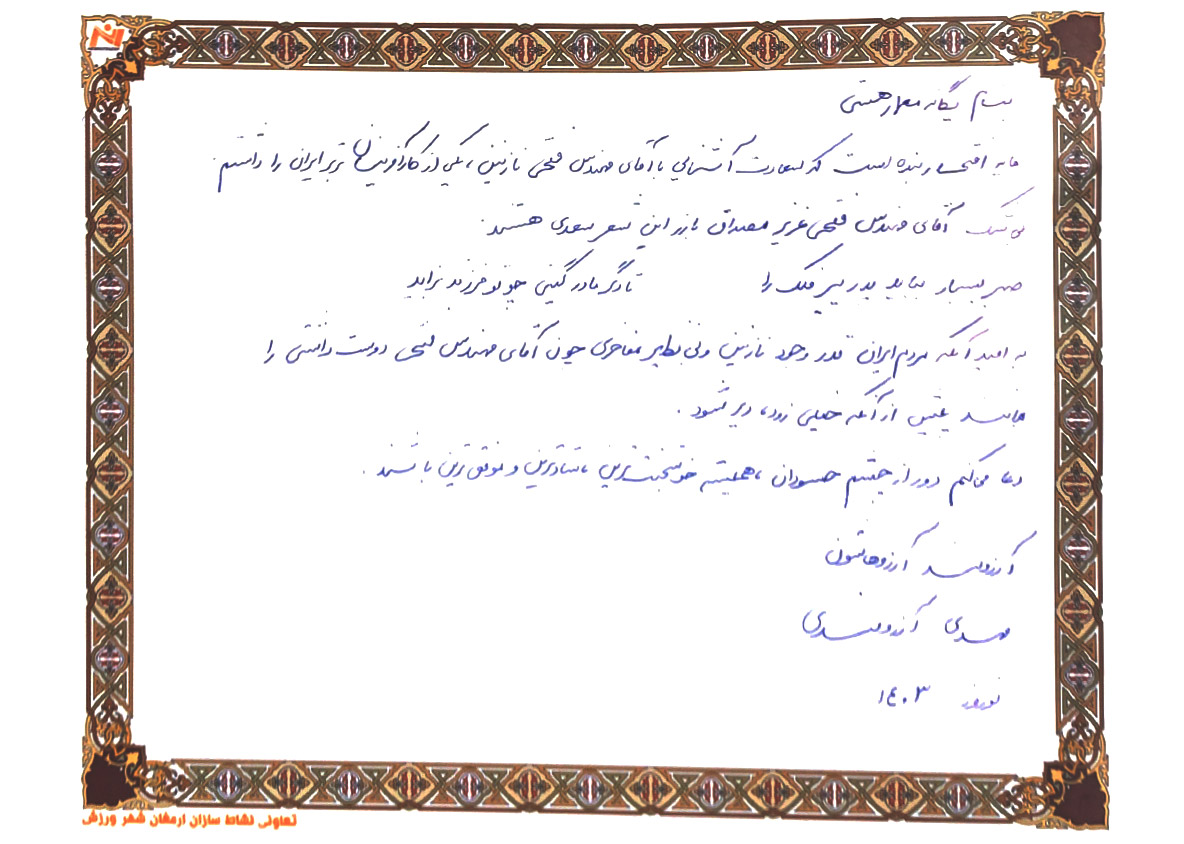 بنام یگانه معمار هستی
مایه افتخار بنده است که سعادت آشنایی با آقای مهندس فتحی نازنین، یکی از کارآفرینان برتر ایران را داشتم.
بی‌شک آقای مهندس فتحی عزیز مصداق بارز این شعر سعدی هستند:
صبر بسیار بباید پدر پیر فلک را تا دگر مادر گیتی چو تو فرزند بزاید
به امید آنکه مردم ایران قدر وجود نازنین و بی نظیر مفاخری چون آقای مهندس فتحی دوست داشتنی را
بدانند پیش از آنکه خیلی زود، دیر شود.
دعا می‌کنم دور از چشم حسودان، همیشه خوشبخت‌ترین، شادترین و موفق‌ترین باشند.
آرزومند آرزوهاتون
مهدی آرزومندی
نوروز ۱۴۰۳
تعاونی نشاط سازان ارمغان شهر ورزش